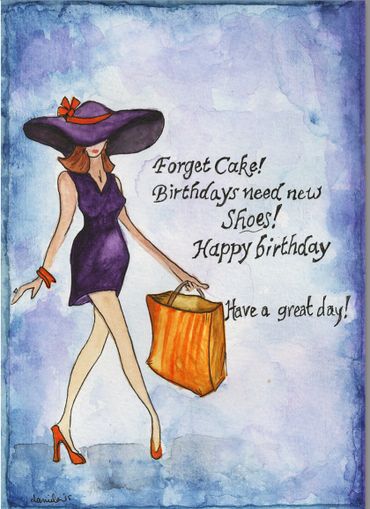 Forget Cake!
Birthdays need new
Shoes!
Happy birthday
Have a great day!